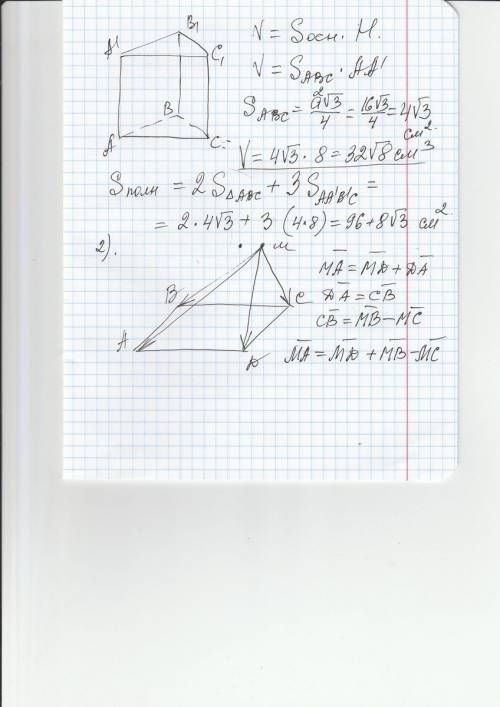 V = Sосн. H.
V = S_ABC · AA'
S_ABC = a²√3/4 = 16√3/4 = 4√3 см².
V = 4√3 · 8 = 32√8 см³
Sполн = 2S△ABC + 3S_AA'B'C =
= 2·4√3 + 3 (4·8) = 96+8√3 см².
A' B₁ C₁
A B C
2).
M
B C
A D
M̅A̅ = M̅D̅ + D̅A̅
D̅A̅ = C̅B̅
C̅B̅ = M̅B̅ − M̅C̅
M̅A̅ = M̅D̅ + M̅B̅ − M̅C̅